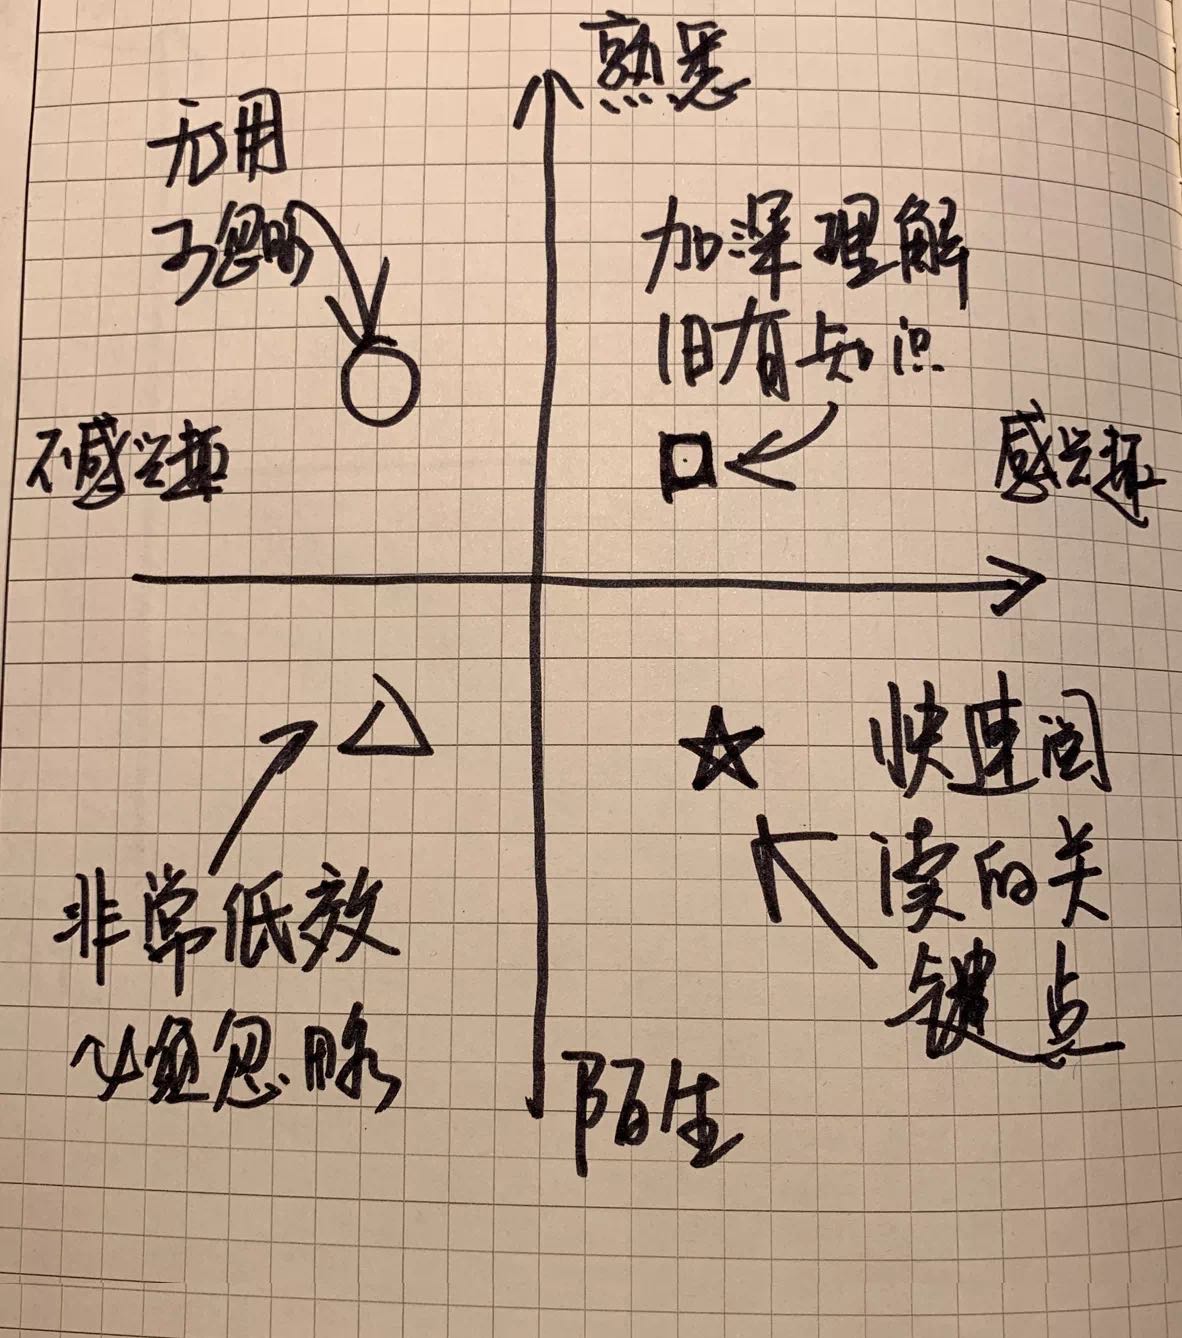 熟悉
无用
可忽略
加深理解
旧有知识
不感兴趣
感兴趣
快速阅
读的关
键点
非常低效
必须忽略
陌生